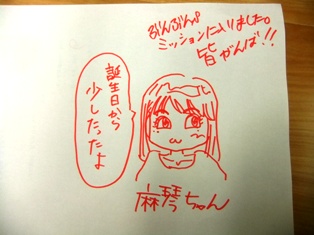 ぶんぶんが
ミッションに入りました。
皆がんば!!
誕生日から
少したったよ
麻琴ちゃん